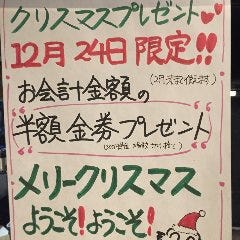 クリスマスプレゼント♥♥
12月24日限定!!
お会計金額の
半額金券プレゼント
メリークリスマス
ようこそ!ようこそ!